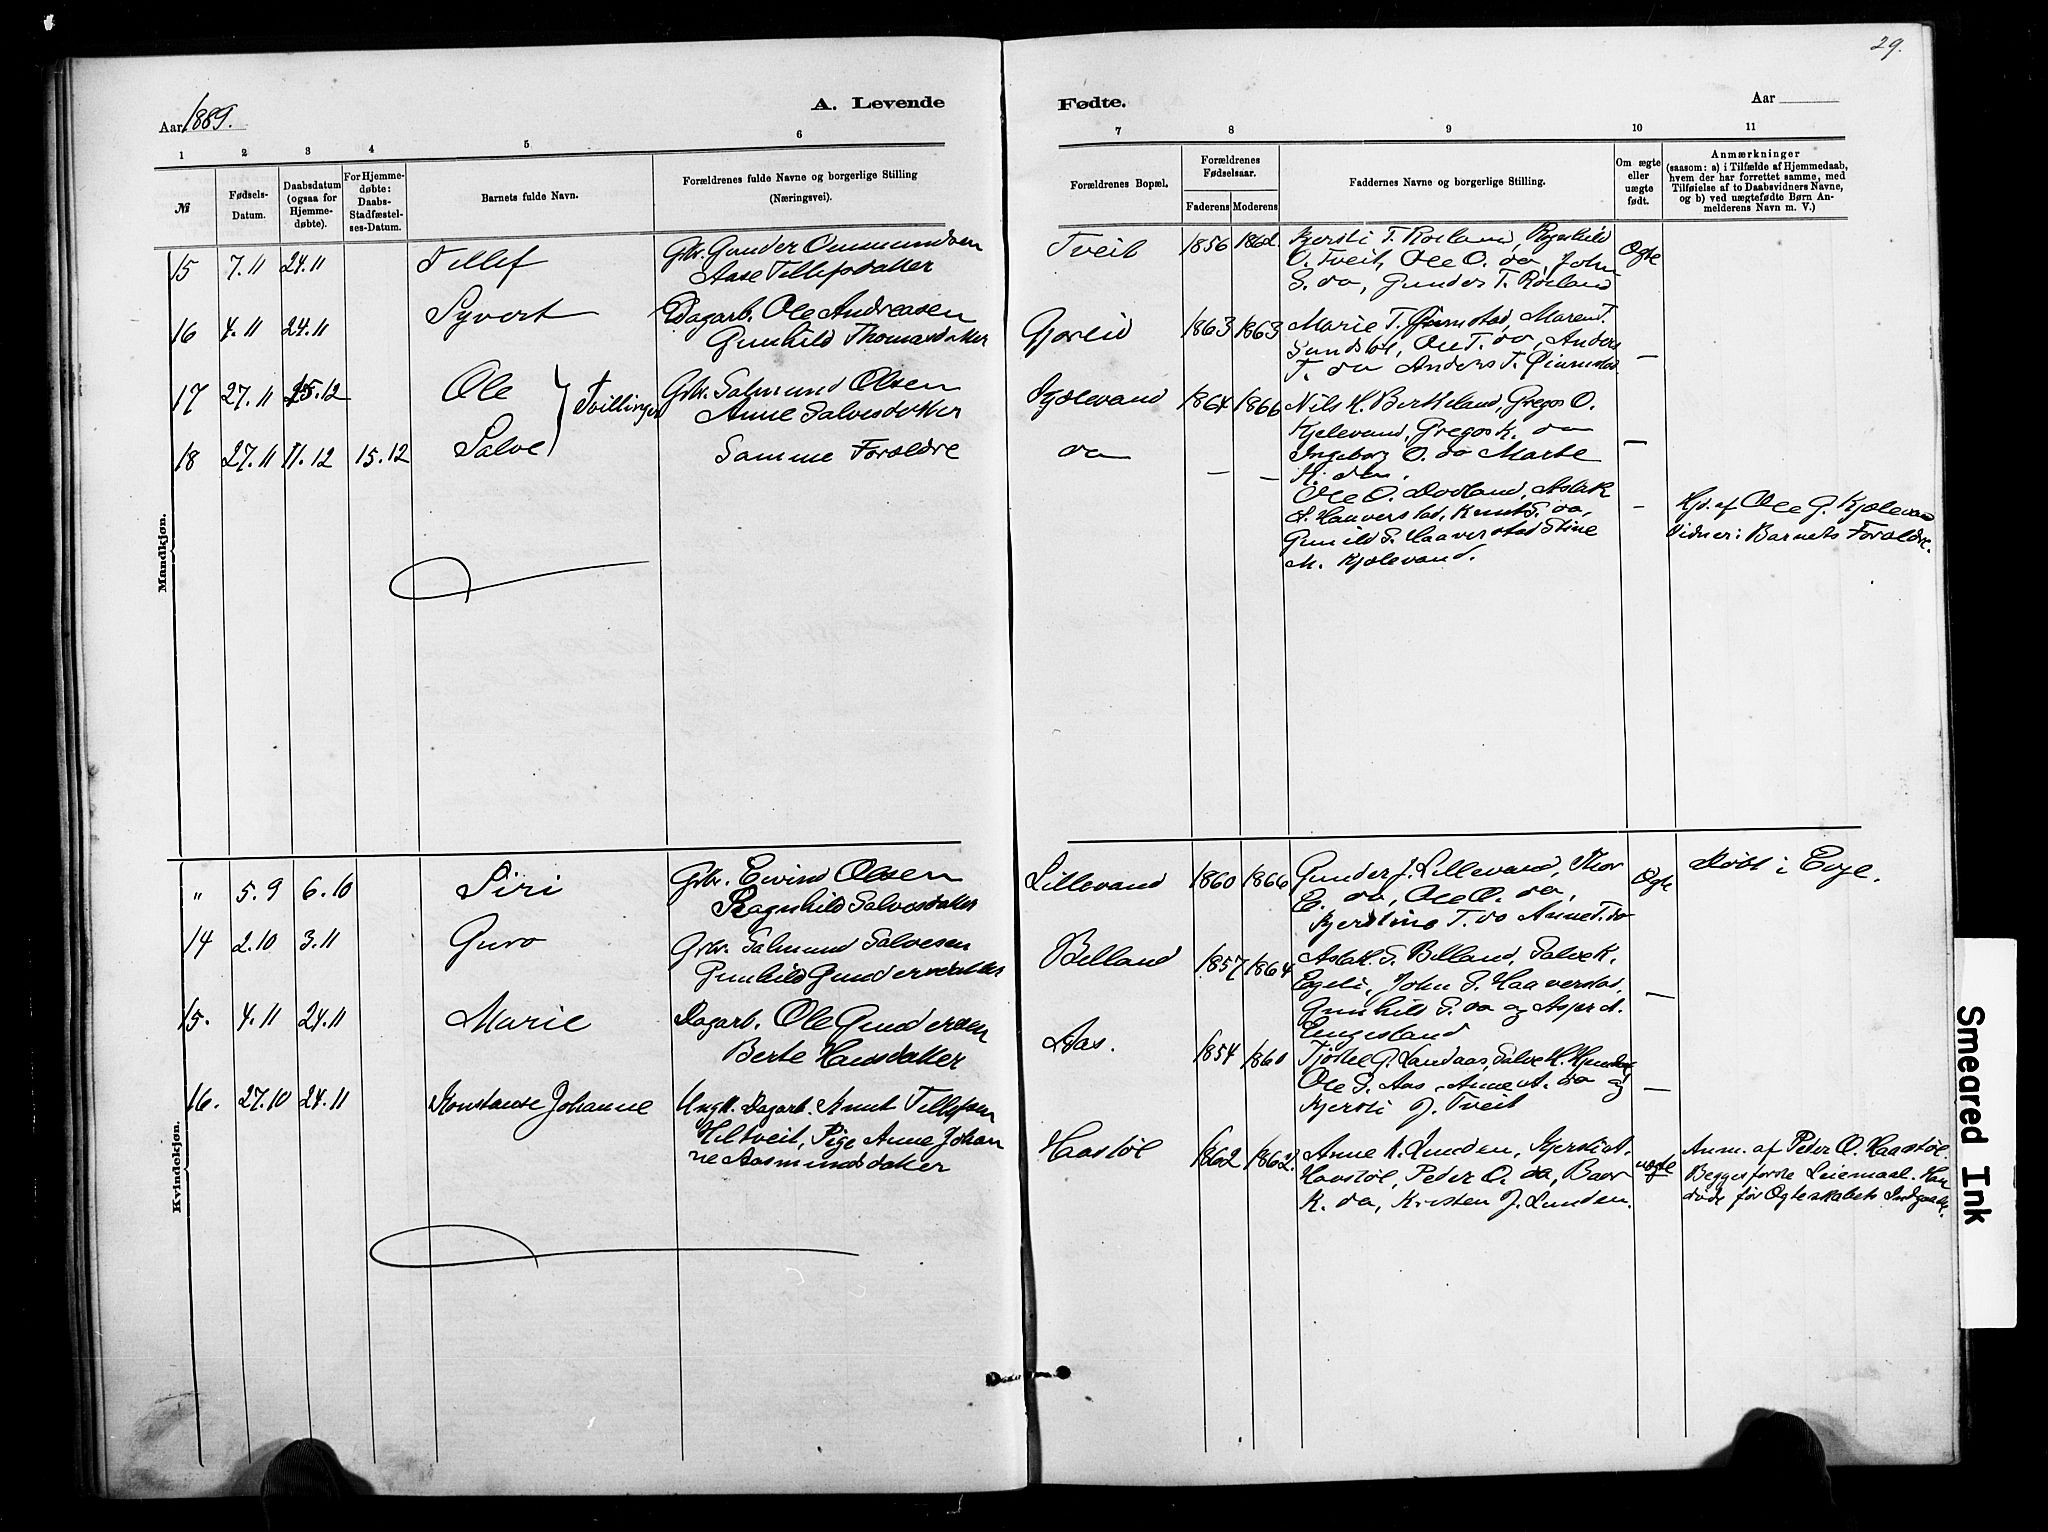 29.
Aar 1889.
A. Levende
Fødte.
Aar
1 2 3 4 5 6 7 8 9 10 11
№
Fødsels-Datum.
Daabsdatum (ogsaa for Hjemmedøbte).
For Hjemmedøbte: Daabs-Stadfæstelses-Datum.
Barnets fulde Navn.
Forældrenes fulde Navne og borgerlige Stilling
(Næringsvei).
Forældrenes Bopæl.
Forældrenes Fødselsaar.
Faderens Moderens
Faddernes Navne og borgerlige Stilling.
Om ægte eller uægte født.
Anmærkninger
(saasom: a) i Tilfælde af Hjemmedaab,
hvem der har forrettet samme, med
Tilføielse af to Daabsvidners Navne,
og b) ved uægtefødte Børn Anmelderens Navn m. V.)
Mandkjøn.
15 7.11 24.11 Tellef Gbr. Gunder Ommundsen
Aase Tellefsdatter
Tveit 1856 1862. Kjersti T. Roiland, Ragnhild
O. Tveit, Ole O. do, John
S. do, Gunder T. Roiland
Ægte
16 4.11 24.11 Syvert Dagarb. Ole Andreasen
Gunhild Thomasdatter
1863 1863 Marie T. Maren T.
Ole T. do, Anders
T. do Anders T.
—
17 27.11 15.12 Ole Tvillinger Gbr. Salmund Olsen
Anne Salvesdatter
Kjælevand 1864 1866 Nils H. Birkeland, Gregos O.
Kjelevand, Gregos K. do
Ingeborg O. do Marte
K. do.
—
18 27.11 11.12 15.12 Salve Samme Forældre
do — — Ole O. Dovland, Aslak
S. Haaverstad, Knut S. do,
Gunild S. Haaverstad Stine
M. Kjælevand.
— Hjd. af Ole G. Kjælevand
Vidner: Barnets Forældre.
Kvindekjøn.
" 5.9 6.10 Siri Gbr. Eivind Olsen
Ragnhild Salvesdatter
Lillevand 1860 1866 Gunder J. Lillevand, Thor
E. do, Ole O. do,
Kjerstine T. do Anne T. do
Ægte Døbt i Evje.
14 2.10 3.11 Guro Gbr. Salmund Salvesen
Gunhild Gundersdatter
Belland 1857 1864 Aslak S. Belland, Salve K.
Egeli, John S. Haaverstad,
Gunhild S. do og Asjer A.
Engesland
—
15. 4.11 24.11 Marie Dagarb. Ole Gundersen
Berte Hansdatter
Aas. 1854 1860 G. Landaas, Salve H.
Ole S. Aas, Anne A. do og
Kjersti J. Tveit
—
16. 27.10 24.11 Konstance Johanne Ungk. Dagarb. Knut Tellefsen
Heltveit, Pige Anne Johanne Aasmundsdatter
Haastøl 1862 1862. Anne K. Lunden, Kjersti A.
Haastøl, Peder O. do, Baar
K. do, Kristen J. Lunden.
uægte Anm. af Peder O. Haastøl.
Begges første Leiemaal. Han
døde før Ægteskabets Indgaaelse.
Smeared Ink